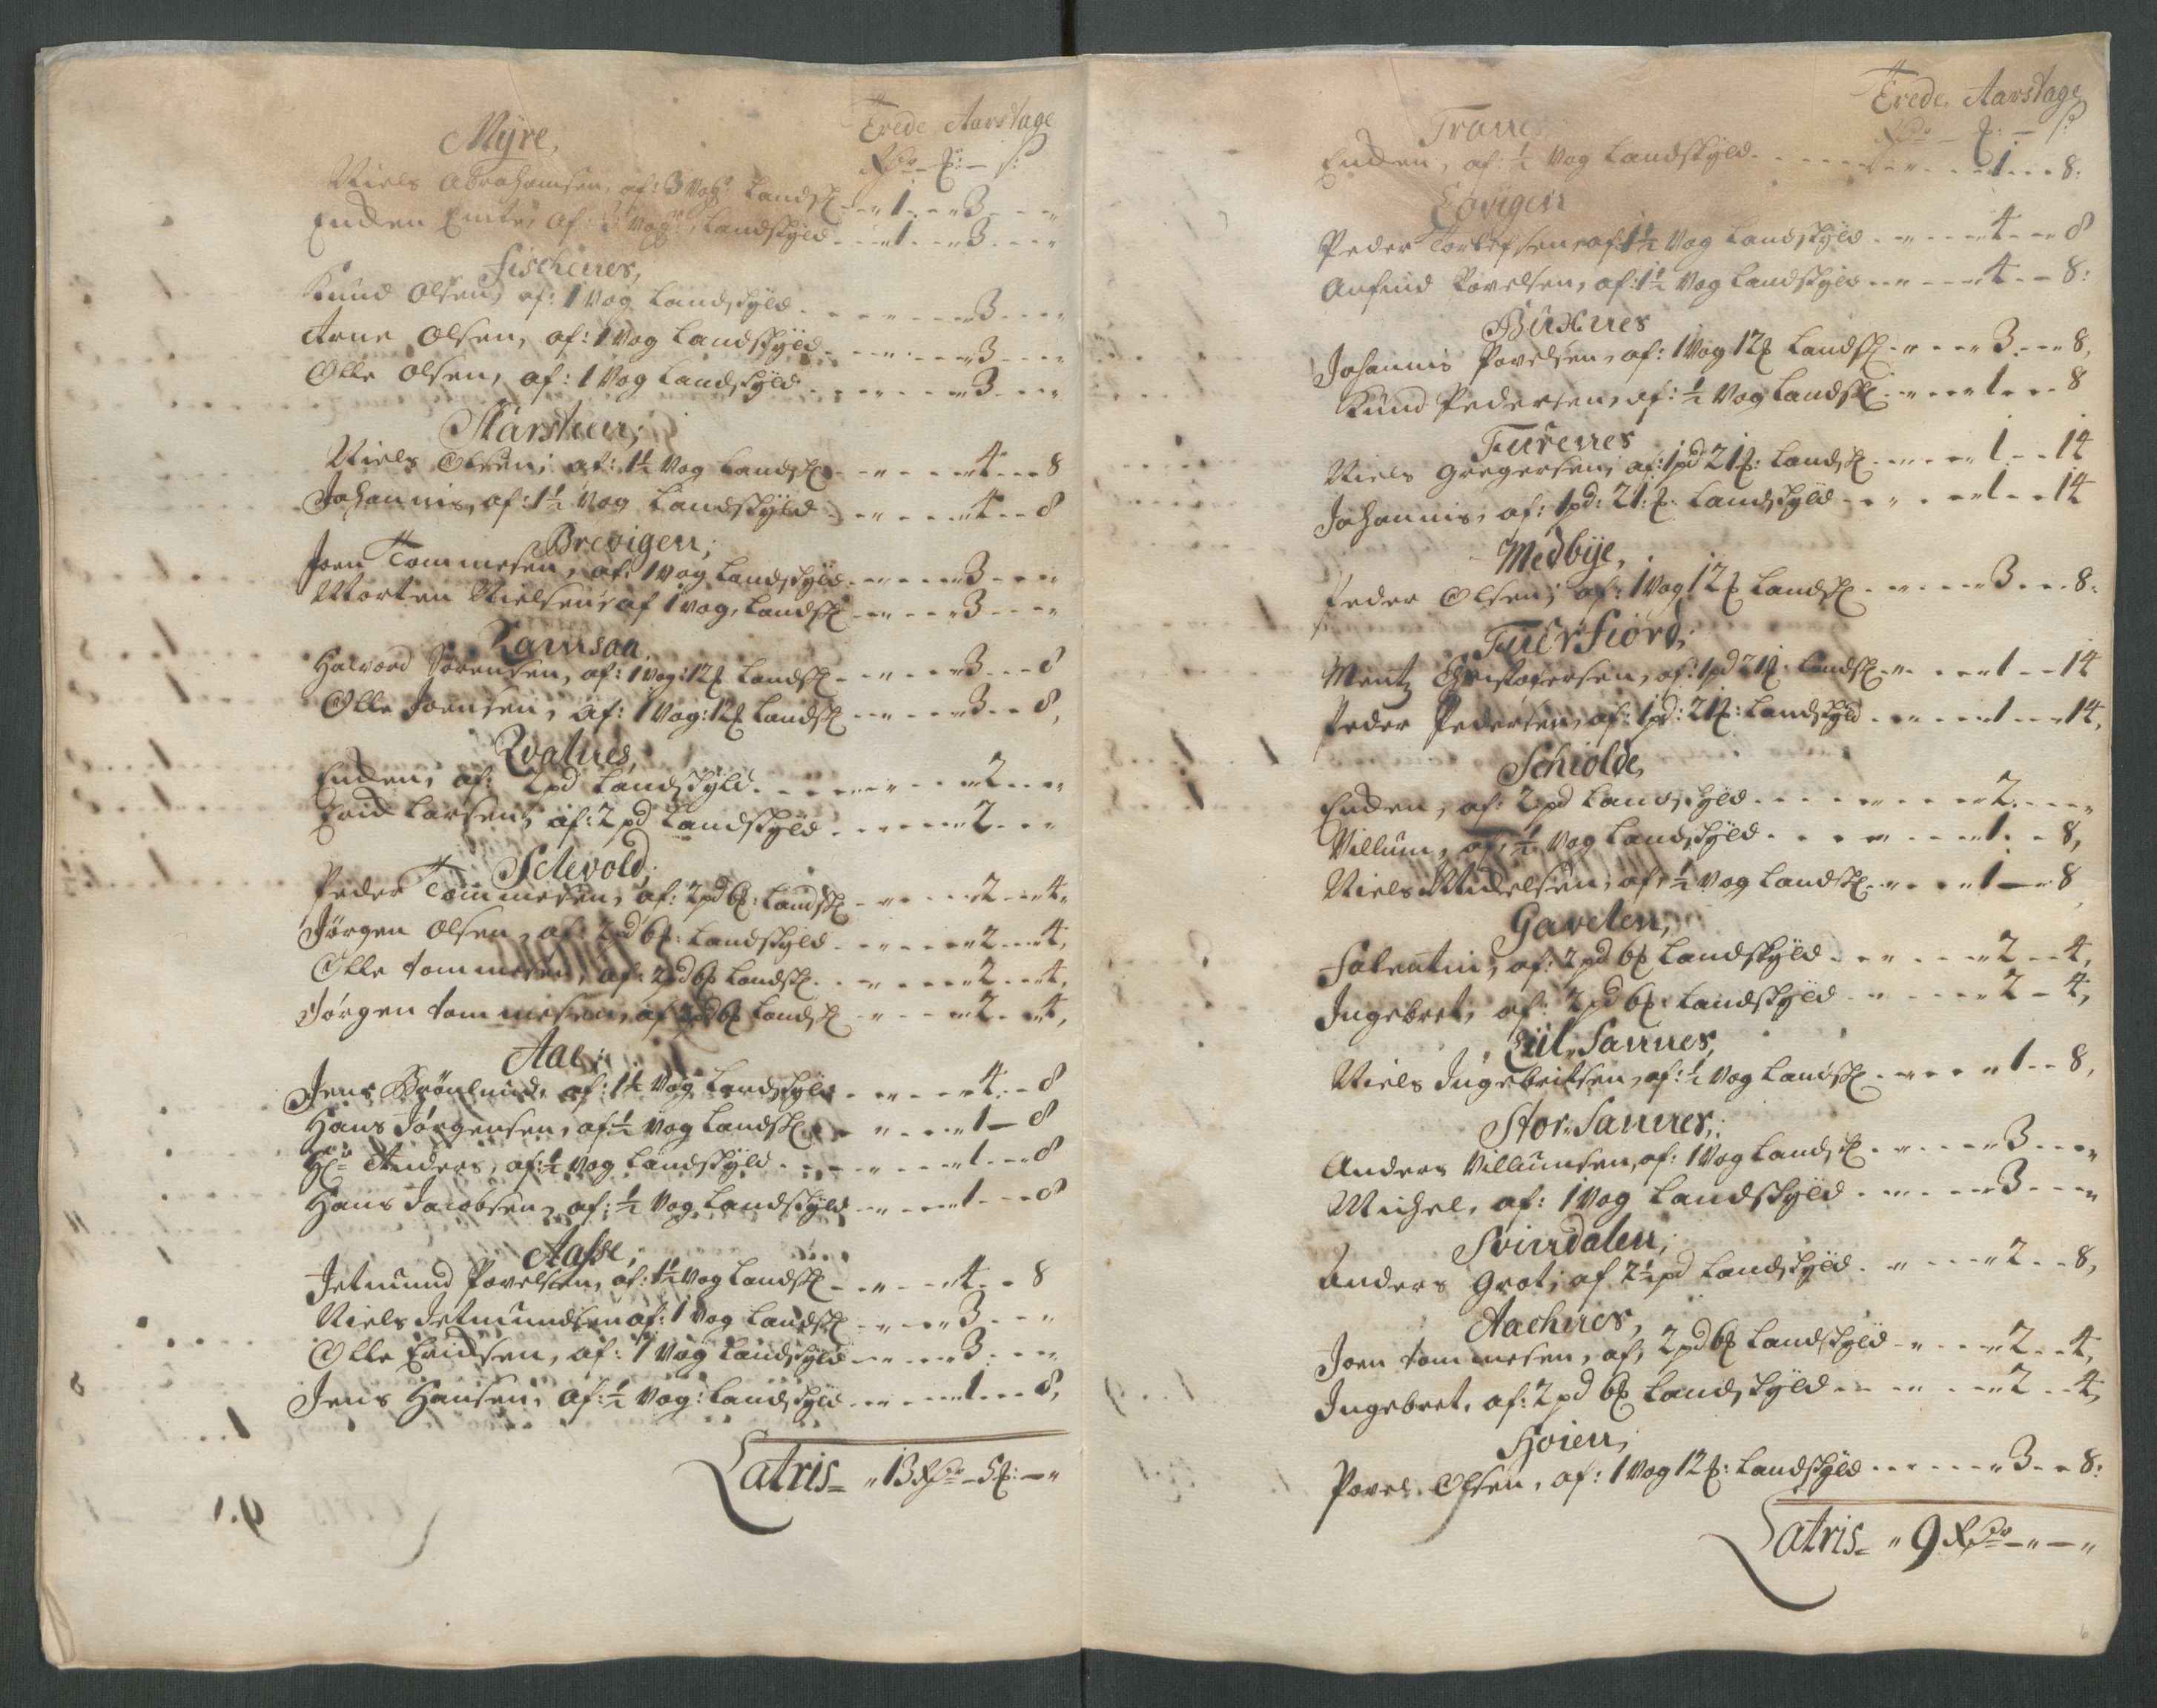 Trede Aarstage
Rdr - ℔: - s:
Myre,
Niels Abrahamsen, af: 3 Vog: Landsk - " 1 - - " 3 - - - "
Enden Ente, af 3 Vog: Landskyld - - " 1 - - " 3 - - - "
Fischenes,
Knud Olsen, af: 1 Vog Landskyld - - " - - - " 3 - - - "
Arne Olsen, af: 1 Vog Landskyld - - " - - - " 3 - - - "
Olle Olsen, af: 1 Vog Landskyld - - " - - - " 3 - - - "
Starsteen,
Niels Olsen, af: 1½ Vog Landsk - " - - - " 4 - - 8
Johannis, af: 1½ Vog Landskyld - " - - - " 4 - - 8
Brevigen,
Joen Tommesen, af: 1 Vog Landskyld - " - - - " 3 - - "
Morten Nielsen, af 1 vog, Landsk - " - - - " 3 - - - "
Ramsaa,
Halvord Sørensen, af: 1 Vog: 12℔ Landsk - " - - - " 3 - - 8
Olle Joensen, af: 1 Vog: 12℔ Landsk - " - - - " 3 - - 8,
Qvalnes,
Enden, af: 2 pd Landskyld - - " - - - " 2 - - - "
Erich Larsen, af: 2 pd Landskyld - - " - - - " 2 - - - "
Sclevold,
Peder Tommesen, af: 2 pd 6℔: Landsk - " - - - " 2 - - 4,
Jørgen Olsen, af: 2 pd 6℔: Landskyld - " - - - " 2 - - 4,
Olle Tommesen, af: 2 pd 6℔ Landsk - " - - - " 2 - - 4,
Jørgen Tommesen, af 2 pd 6℔ Landsk - " - - - " 2 - - 4,
Aae,
Jens Brönlund, af: 1½ Vog Landskyld - " - - - " 4 - - 8
Hans Jørgensen, af: ½ Vog Landsk - " - - - " 1 - 8
Hr Anders, af: ½ Vog Landskyld - " - - - " 1 - - 8
Hans Jacobsen, af: ½ Vog Landskyld - " - - - " 1 - - 8
Aasse,
Jetmund Povelsen, af: 1½ Vog Landsk - " - - " 4 - - 8
Niels Jetmundsen af: 1 Vog Landsk - " - - " 3 - - "
Olle Erichsen, af: 1 Vog Landskyld - " - - " 3 - - "
Jens Hansen, af: ½ Vog: Landskyld - " - - " 1 - - 8,
Latris = " 13 Rdr - 5℔: - "
Trede Aarstage
Rdr - ℔: - s:
Tranes,
Enden, af: ½ Vog Landskyld - - " - - - 1 - - 8:
Eovigen
Peder Torlefsen, af: 1½ Vog Landskyld - " - - - 4 - - 8
Anfind Povelsen, af: 1½ Vog Landskyld - " - - - 4 - - 8:
Buxnes
Johannis Povelsen, af: 1 Vog 12℔ Landsk - " - - 3 - - 8,
Knud Pedersen, af: ½ Vog Landsk - " - - " 1 - - 8
Furenes
Niels Gregersen, af: 1 pd 21℔: Landsk - " - - 1 - - 14
Johannis, af: 1 pd: 21:℔ Landskyld - " - - " 1 - - 14
Medbye,
Peder Olsen, af: 1 Vog 12℔ Landsk - " - - " 3 - - 8:
Fuerfiord,
Mentz Christofersen, af: 1 pd 21℔: Landsk - " - - " 1 - - 14
Peder Pedersen, af: 1 pd: 21℔: Landskyld - " - - " 1 - - 14,
Schiolde,
Enden, af: 2 pd Landskyld - - - " - - - " 2 - - - "
Villum, af, ½ Vog Landskyld - - - " - - - " 1 - - 8,
Niels Michelsen, af, ½ Vog Landsk - " - - " 1 - " 8,
Gavelen,
Falentin, af: 2 pd 6℔ Landskyld - " - - " 2 - - 4,
Ingebret, af: 2 pd 6℔ Landskyld - " - - " 2 - 4,
Lil Sannes,
Niels Ingebritsen, af: ½ Vog Landsk - " - - " 1 - - 8,
Stor Sannes,
Anders Villumsen, af: 1 Vog Landsk - " - - " 3 - - "
Michel, af: 1 Vog Landskyld - " - - " 3 - - - "
Svindalen,
Anders Grot, af 2½ pd Landskyld - " - - " 2 - - 8,
Aachnes,
Joen Tommesen, af, 2 pd 6℔ Landskyld - " - - " 2 - - 4,
Ingebret, af: 2 pd 6℔ Landskyld - " - - " 2 - - 4,
Hoien,
Povel Olsen, af: 1 Vog 12℔: Landskyld - " - - " 3 - - 8:
Latris = " 9 Rdr - " - "
6